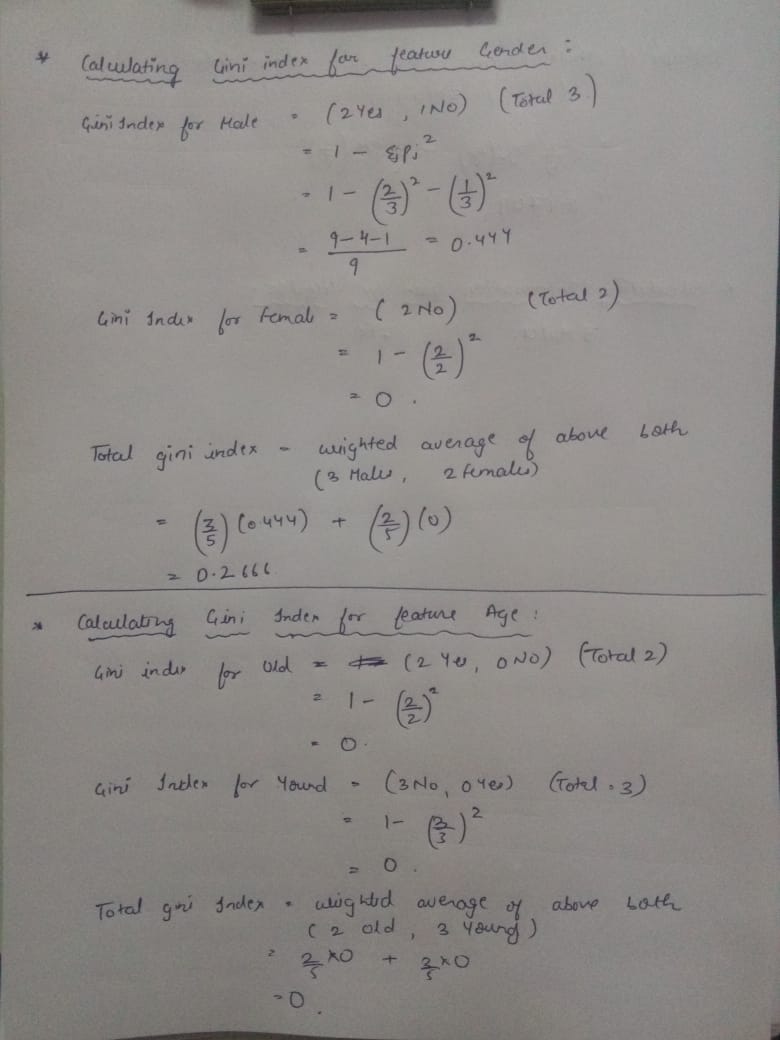 * Calculating Gini index for feature Gender :
Gini Index for Male = (2 Yes , 1 No) (Total 3)
= 1 - Σpi²
= 1 - (2/3)² - (1/3)²
= 9-4-1/9 = 0.444
Gini Index for Female = ( 2 No) (Total 2)
= 1 - (2/2)²
= 0 .
Total gini index = weighted average of above both
(3 Males, 2 females)
= (3/5) (0.444) + (2/5) (0)
= 0.2666
* Calculating Gini Index for feature Age :
Gini index for Old = (2 Yes, 0 NO) (Total 2)
= 1 - (2/2)²
= 0.
Gini Index for Yound = (3 No, 0 Yes) (Total = 3)
= 1 - (3/3)²
= 0 .
Total gini Index = weighted average of above both
( 2 old , 3 Young )
= 2/5 × 0 + 3/5 × 0
= 0.